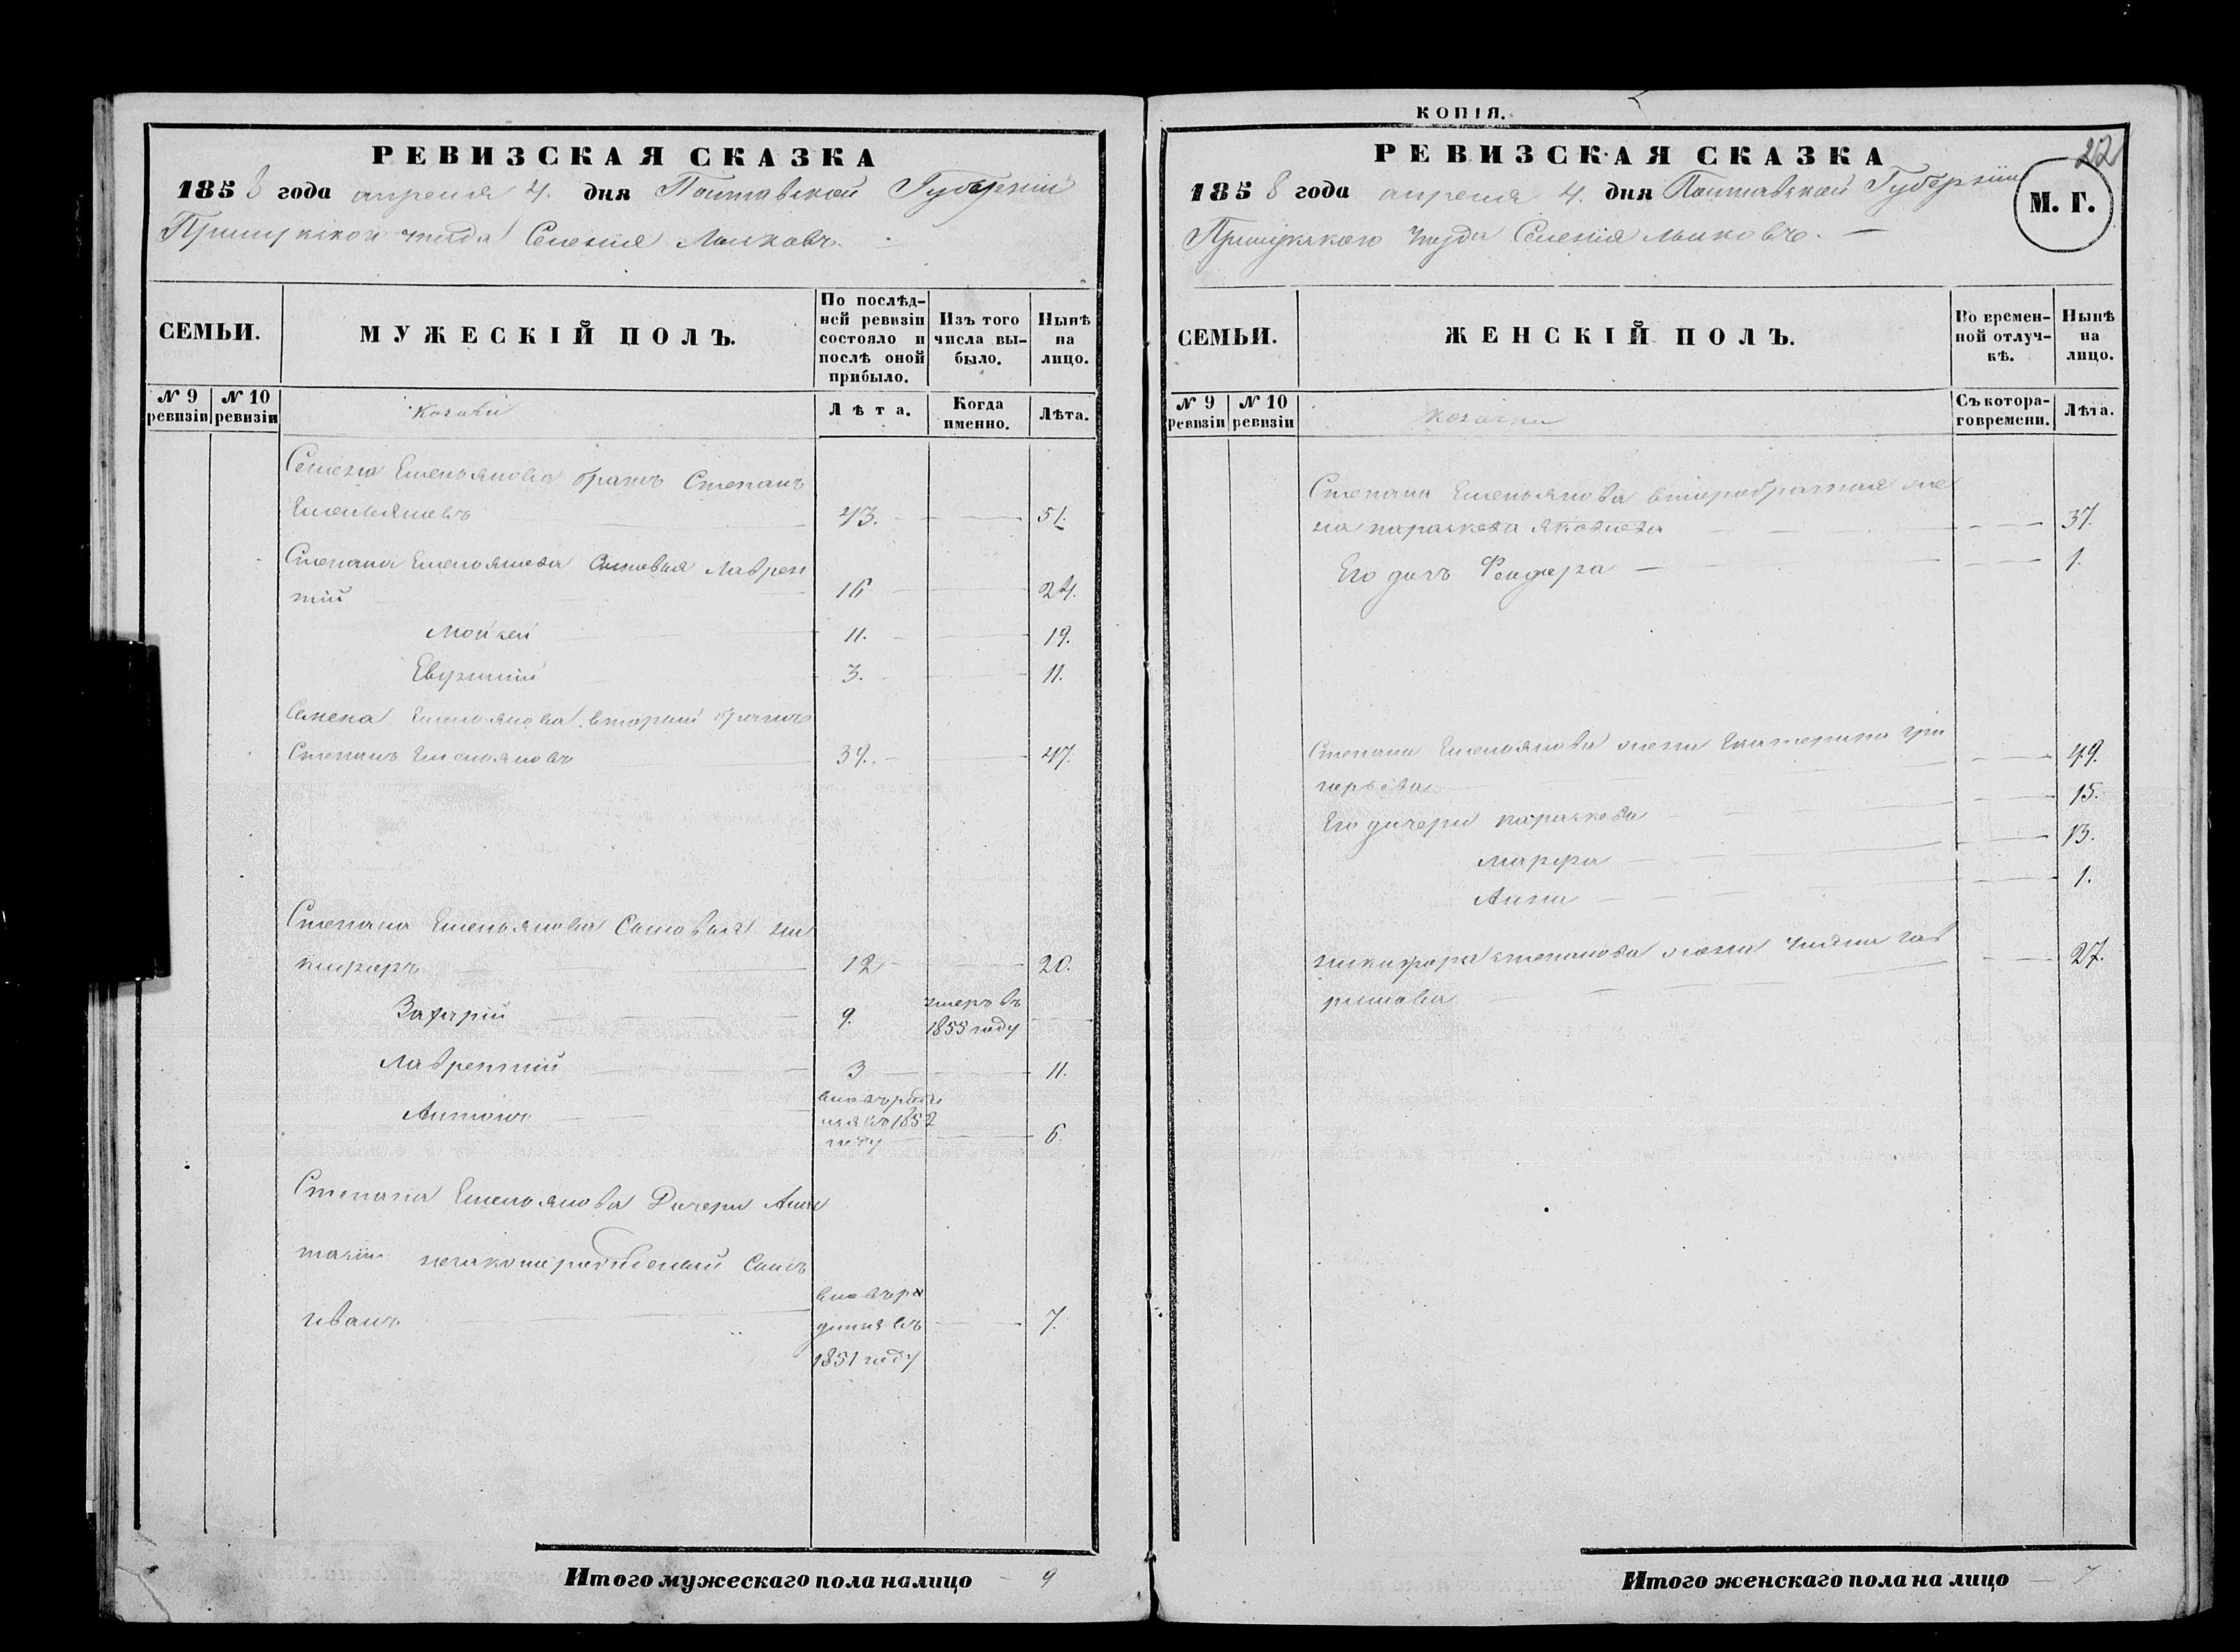 РЕВИЗСКАЯ СКАЗКА
1858 года апреля 4. дня Полтавской Губерніи
Прилуцкого уезда Селенія Малковъ.
СЕМЬИ.
МУЖЕСКІЙ ПОЛЪ.
По послѣд-
ней ревизіи
состояло и
послѣ оной
прибыло.
Изъ того
числа вы-
было.
Нынѣ
на
лицо.
№ 9
ревизіи
№ 10
ревизіи
Козаки
Лѣта.
Когда
именно.
Лѣта.
Семена Емельянова братъ Степанъ
Емельяновъ 43. 51.
Степана Емельянова Сыновья Лаврен
тій 16 24.
Мойсей 11. 19.
Евфимій 3. 11.
Семена Емельянова вторый братъ
Степанъ Емельяновъ 39. 47.
Степана Емельянова Сыновья ни
кифоръ 12 20.
Захарій 9. умеръ въ
1855 году
Лаврентій 3 11.
Антонъ вновьроди
лся въ 1852
году 6
Степана Емельянова Дочери
незаконорожденый Сынъ
иванъ вновьро
дился въ
1851 году 7.
Итого мужескаго пола налицо 9
КОПІЯ.
22
РЕВИЗСКАЯ СКАЗКА
1858 года апреля 4. дня Полтавской Губерніи
Прилуцкого уезда Селенія малковъ.
М. Г.
СЕМЬИ.
ЖЕНСКІЙ ПОЛЪ.
Во времен-
ной отлуч-
кѣ.
Нынѣ
на
лицо.
№ 9
ревизіи
№ 10
ревизіи
Козачки
Съ котора-
го времени.
Лѣта.
Степана Емельянова второбрачная же
на параскева яковлева 37.
Его дочь Феодора 1.
Степана Емельянова жена Екатерина гри
горьева 49.
Его дочери параскева 15.
марфа 13.
Анна 1.
никифора степанова жена Ульяна гав
рилова 27.
Итого женскаго пола на лицо 7